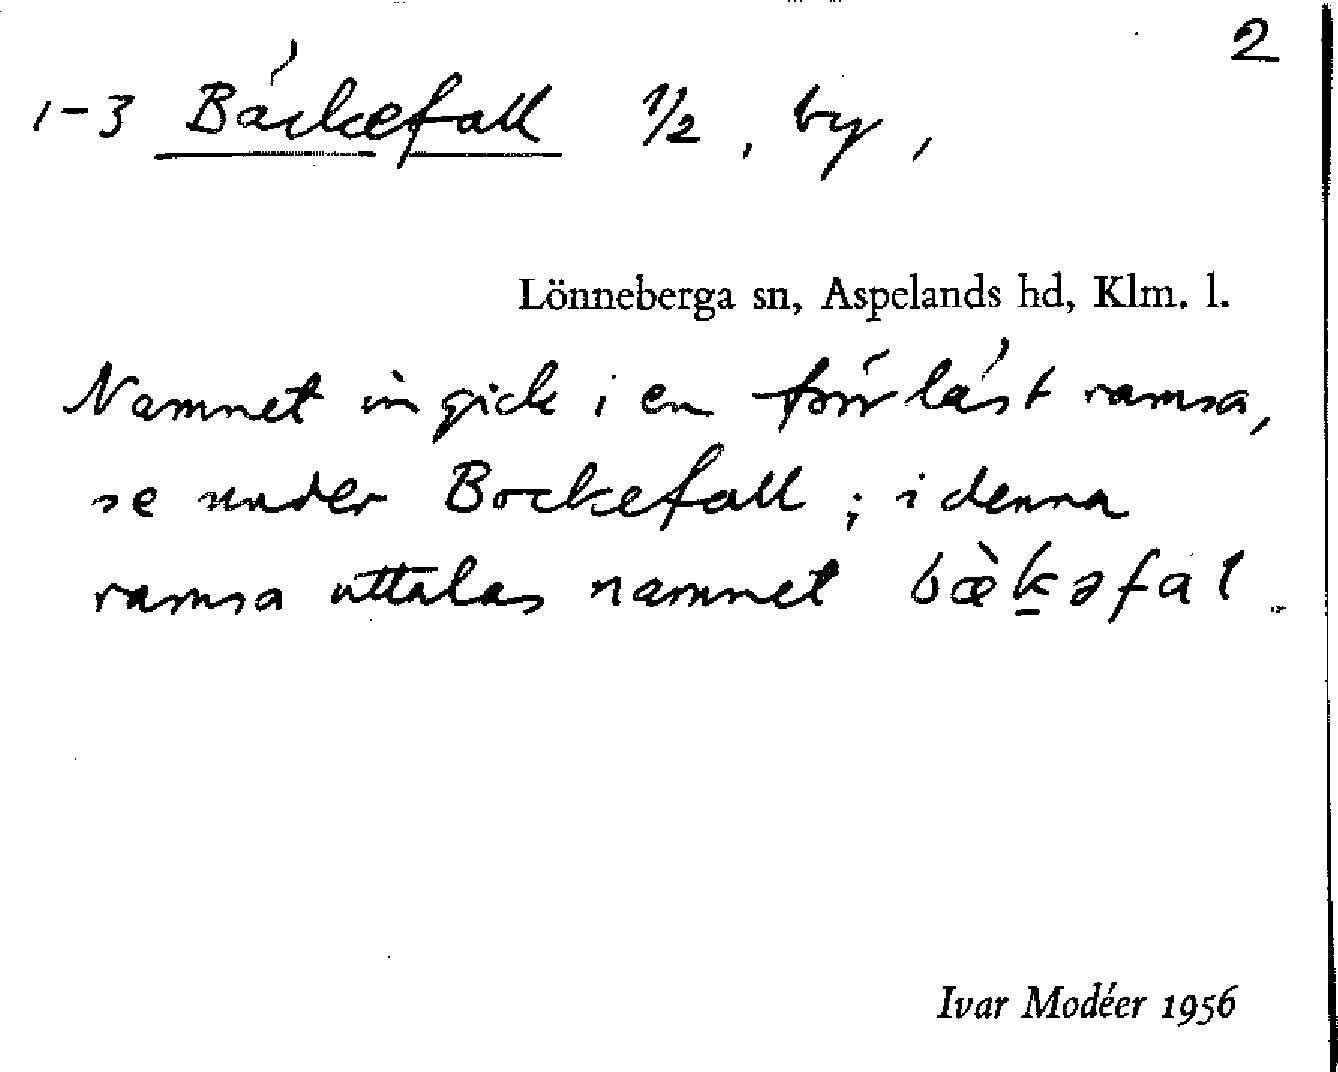 2
1-3 Bäckefall 1/2, by,
Lönneberga sn, Aspelands hd, Klm. l.
Namnet ingick i en förläst ramsa,
se under Bockefall; i denna
ramsa uttalas namnet bæ̀k̲əfal.
Ivar Modéer 1956